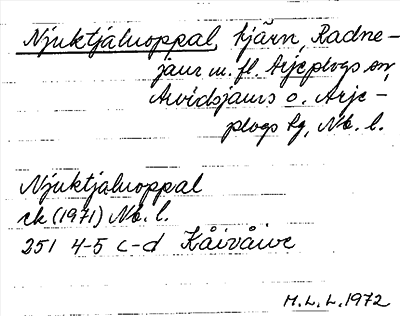 Njuktjaluoppal, tjärn, Radne-
jaur m. fl. Arjeplogs sn,
Arvidsjaurs o. Arje-
plogs tg, Nb. l.
Njuktjaluoppal
ek (1971) Nb. l.
251 4-5 c-d Kåivåive
H. L. L. 1972